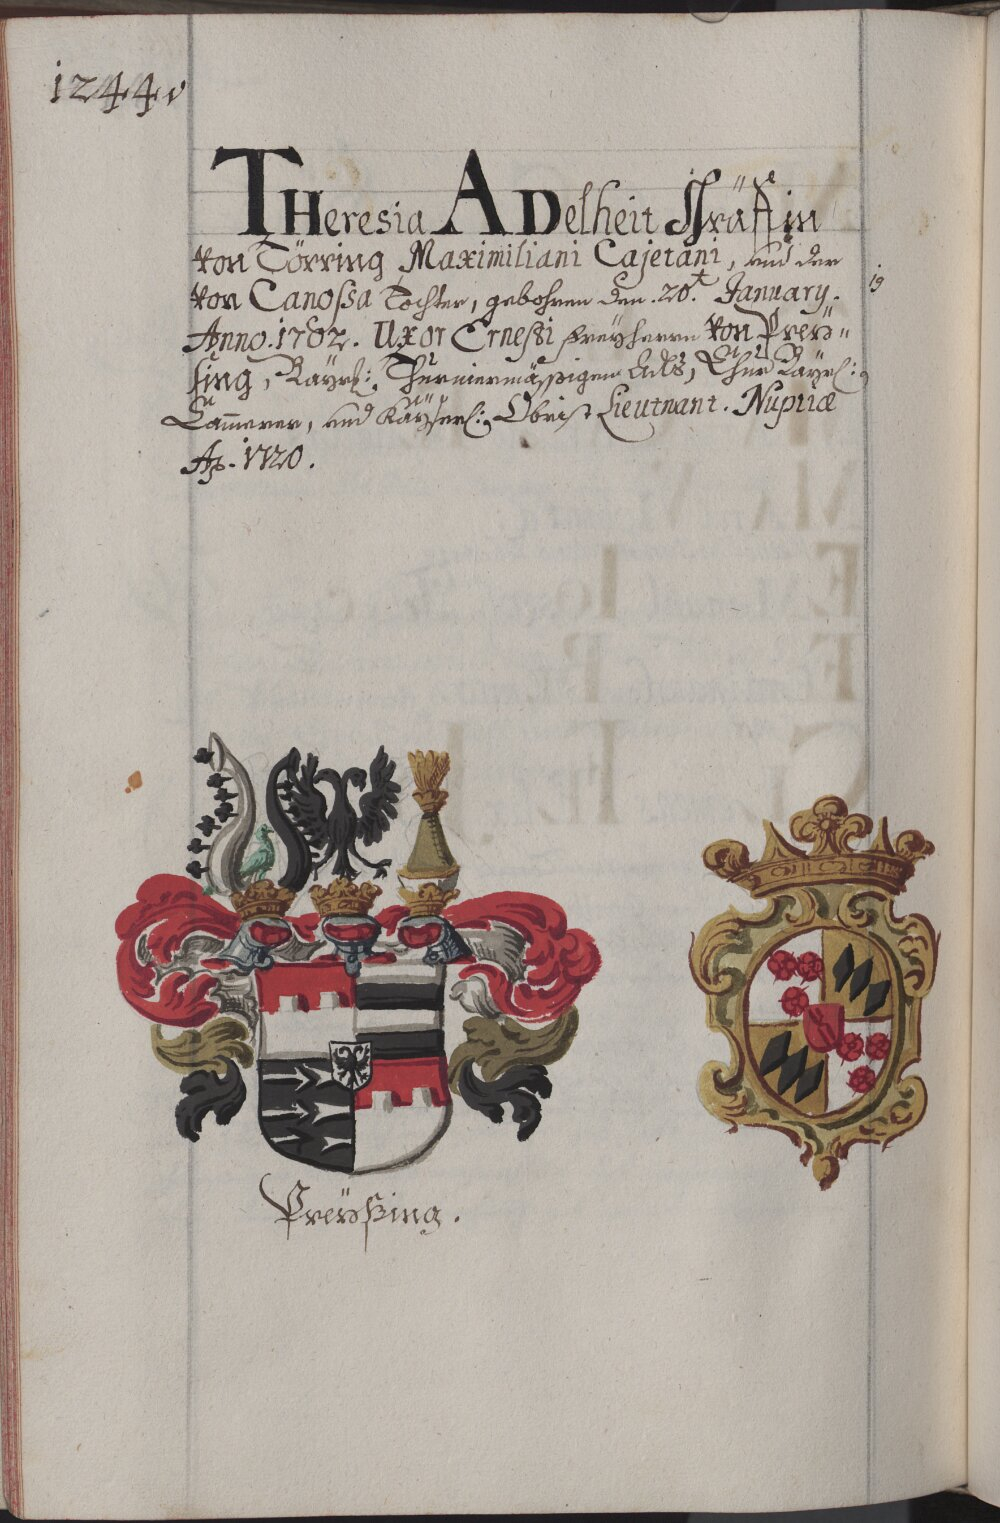 1244v
THeresia ADelheit Gräffin
von Törring Maximiliani Cajetani, und der
von Canossa Tochter, gebohren den 20.t January.
19
Anno. 1702. Uxor Ernesti freÿherrn von Preÿ=
sing, Thurniermässigen Adls, Chur Baÿrl:
Cammerer, und Kaÿserl: Obrist Lieutnant. Nuptiæ
Ao. 1720.
Preÿßing.